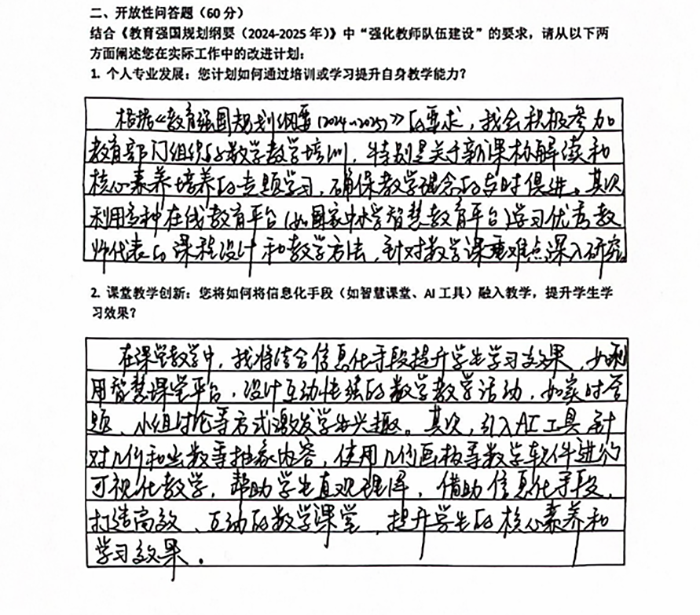 二、开放性问答题（60 分）
结合《教育强国规划纲要（2024-2025 年）》中“强化教师队伍建设”的要求，请从以下两
方面阐述您在实际工作中的改进计划：
1. 个人专业发展：您计划如何通过培训或学习提升自身教学能力？
根据《教育强国规划纲要（2024-2025）》的要求，我会积极参加
教育部门组织的数学教学培训，特别是关于新课标解读和
核心素养培养的专题学习，确保教学理念的与时俱进。其次
利用各种在线教育平台（如国家中小学智慧教育平台）学习优秀教
师代表的课程设计和教学方法，针对数学课重难点深入研究
2. 课堂教学创新：您将如何将信息化手段（如智慧课堂、AI 工具）融入教学，提升学生学
习效果？
在课堂教学中，我将结合信息化手段提升学生学习效果，如利
用智慧课堂平台，设计互动性强的数学教学活动，如实时答
题、小组讨论等方式激发学生兴趣。其次，引入AI工具 针
对几何和函数等抽象内容，使用几何画板等数学软件进行
可视化教学，帮助学生直观理解，借助信息化手段，
打造高效、互动的数学课堂，提升学生的核心素养和
学习效果。